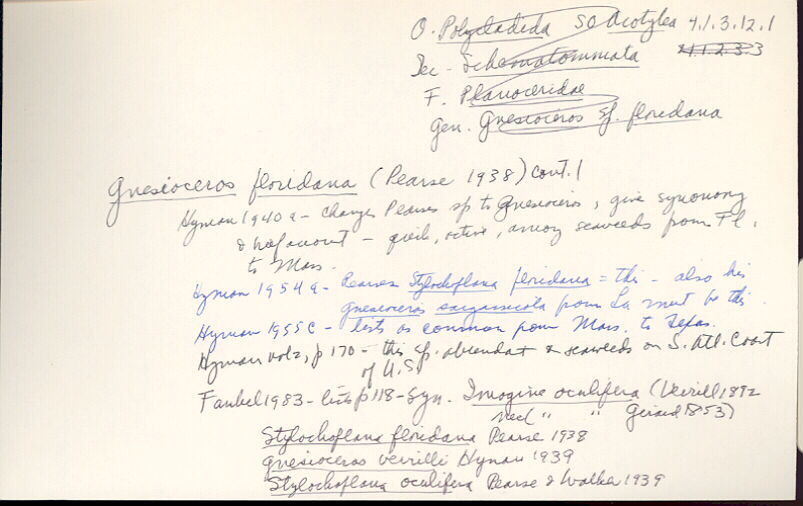 O. Polycladida SO Acotylea 4.1.3.12.1
Sec - Schematommata 4.1.2.3.3
F. Planoceridae
Gen. Gnesioceros Sp. floridana
Gnesioceros floridana (Pearse 1938) cont. 1
Hyman 1940a - changes Pearses sp to Gnesioceros, give synonomy
& hab. account - quick, active, among seaweeds from Fl.
to Mass.
Hyman 1954a - Pearses Stylochoplana floridana = this - also his
Gnesioceros sargassicola from La must be this.
Hyman 1955c - lists as common from Mass. to Texas.
Hyman vol 2, p 170 - this sp. abundant on seaweeds on S. Atl. Coast
of U.S.
Faubel 1983 - lists p 118 - Syn. Imogine oculifera (Verrill 1892
nec " " Girard 1853)
Stylochoplana floridana Pearse 1938
Gnesioceros verrilli Hyman 1939
Stylochoplana oculifera Pearse & Walker 1939